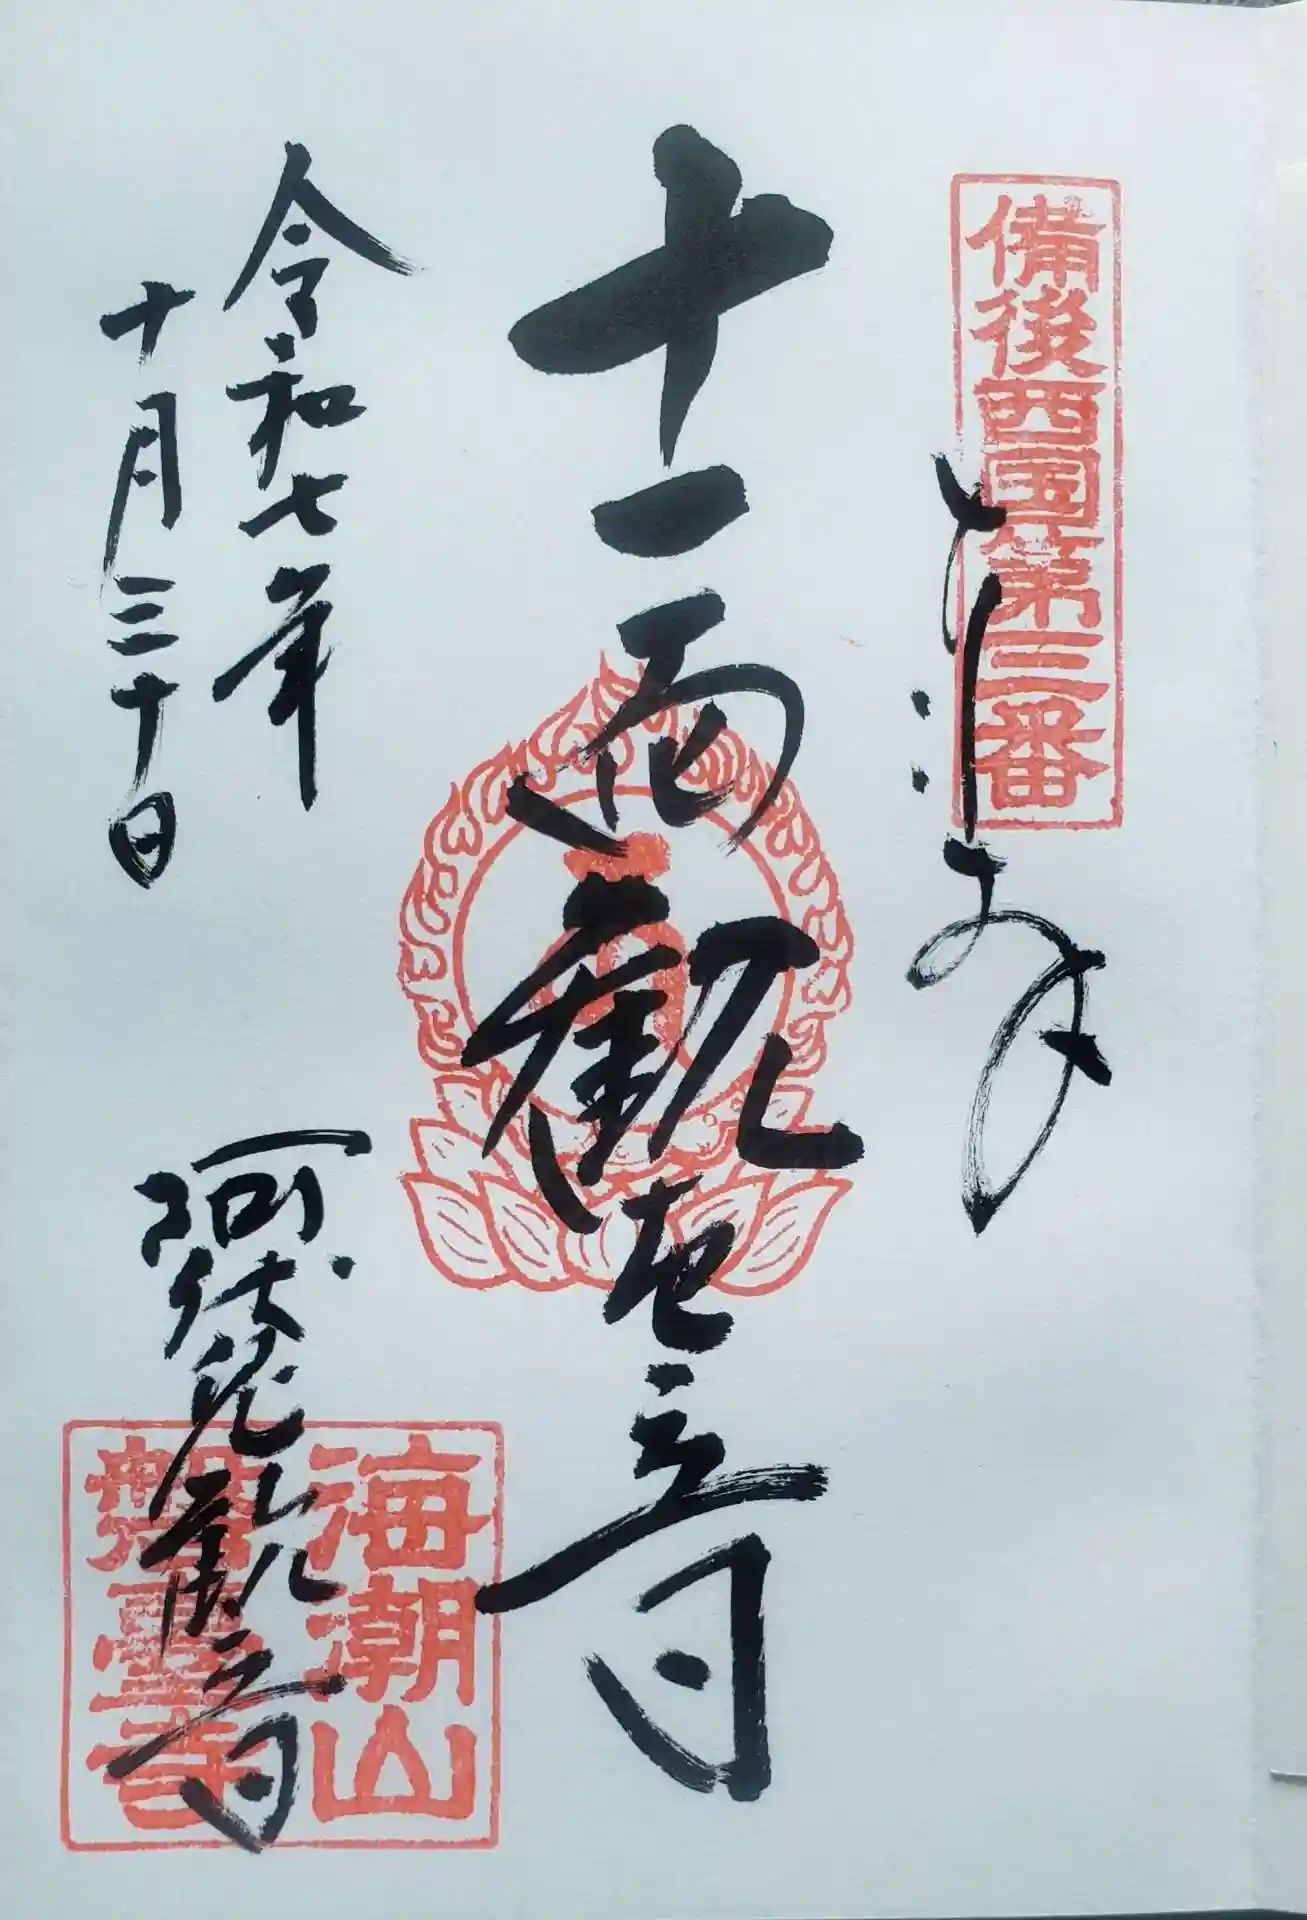 備後西国第三番
十一面観世音
令和七年
十月三十日
阿伏兎観音
海潮山
磐臺寺